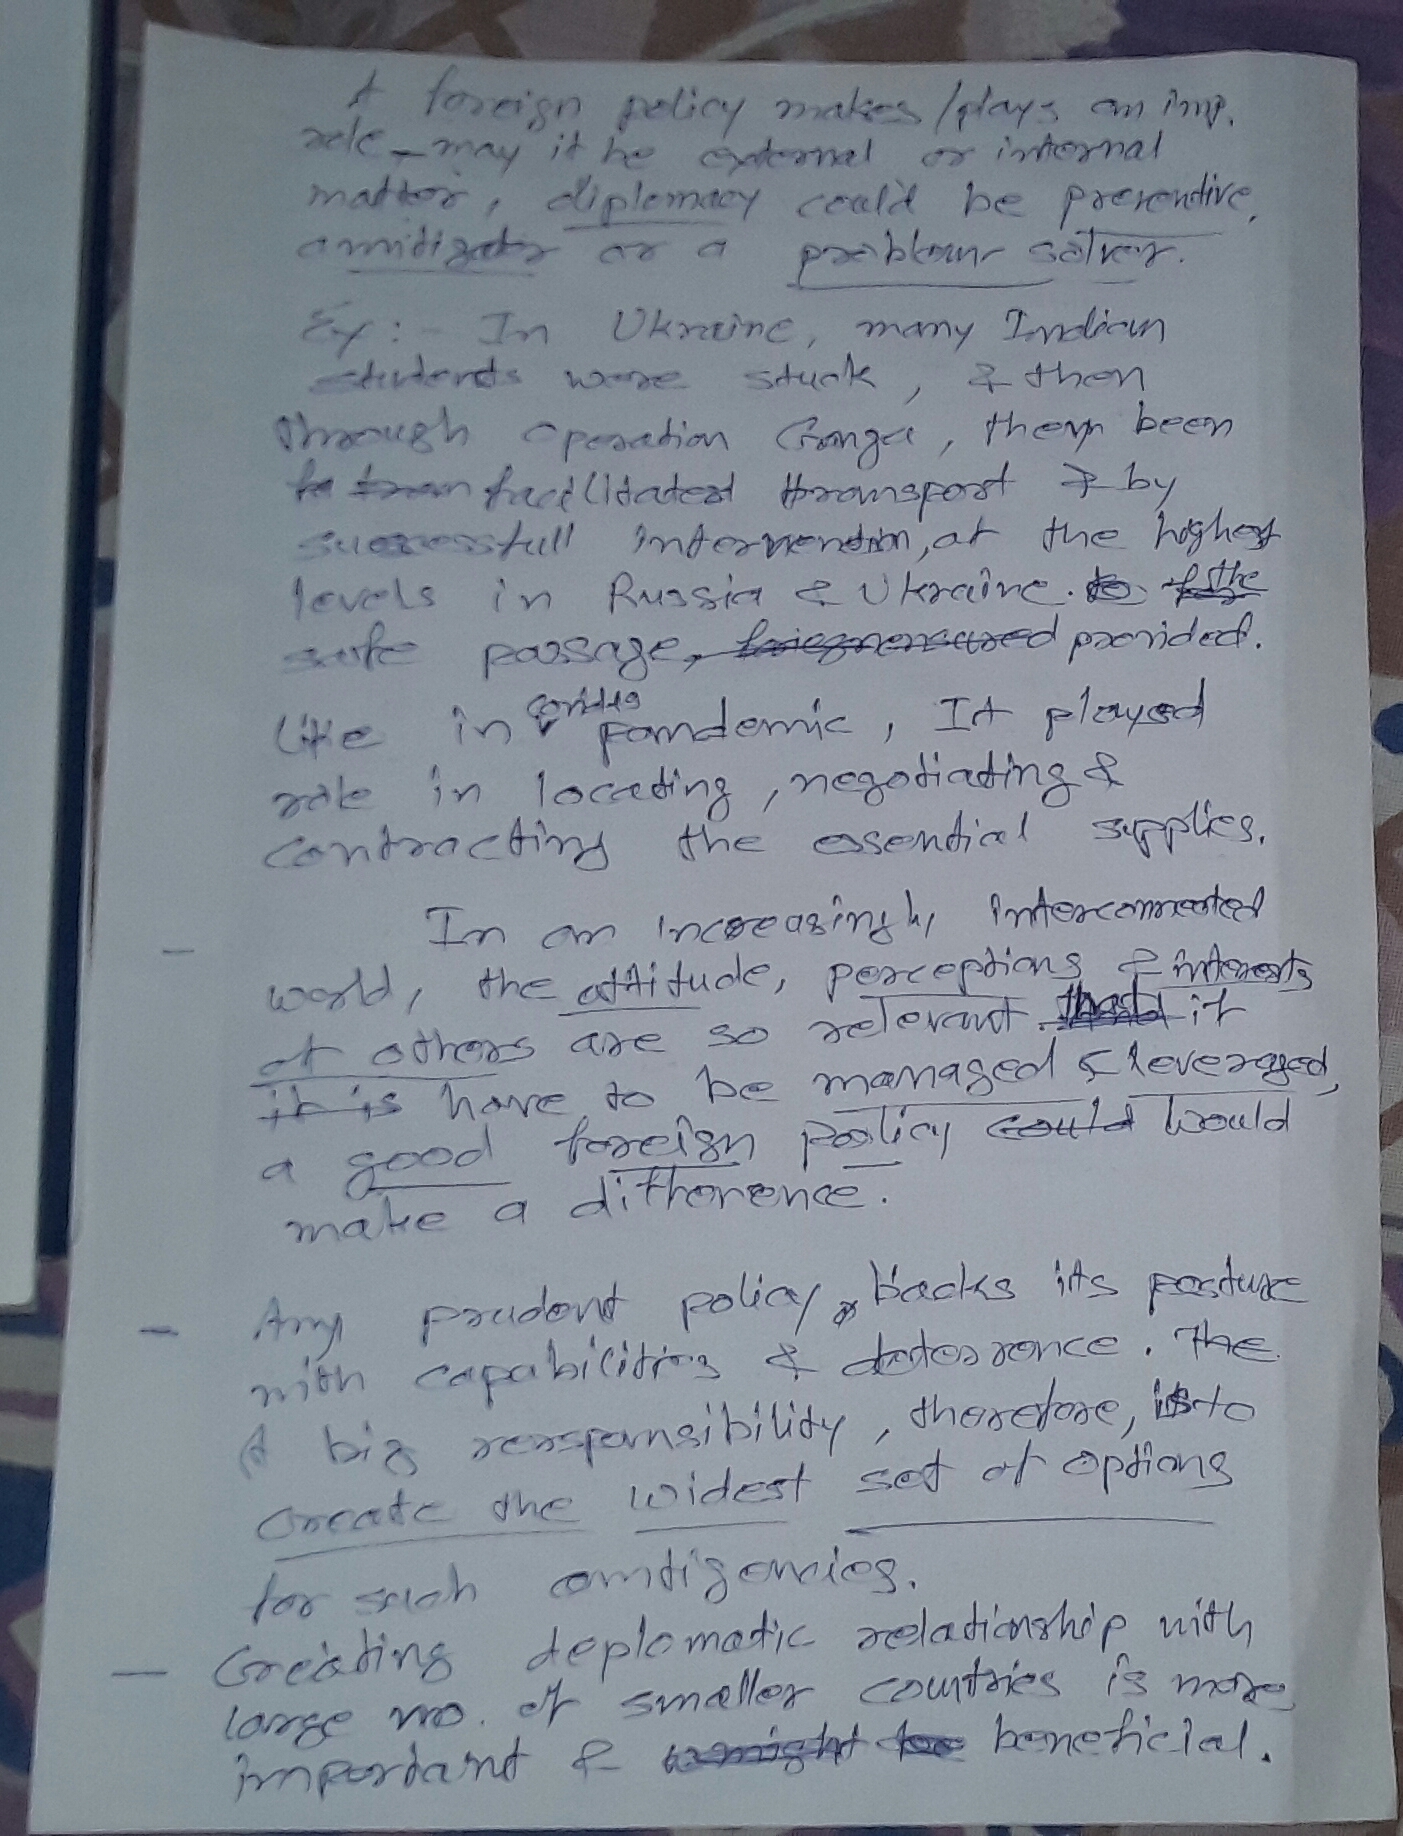 A foreign policy makes/plays an imp.
role - may it be external or internal
matter, diplomacy could be preventive,
a mitigator or a problem solver.
Ex:- In Ukraine, many Indian
students were stuck, & then
through operation Ganga, them been
facilitated transport & by
successfull intervention, at the highest
levels in Russia & Ukraine. to the
safe passage, provided.
Like in covid19 pandemic, It played
role in locating, negotiating &
contracting the essential supplies.
- In an increasingly interconnected
world, the attitude, perceptions & interests
of others are so relevant. it
it is have to be managed & leveraged,
a good foreign policy could would
make a difference.
- Any prudent policy, backs its posture
with capabilities & deterrence. The
A big responsibility, therefore, is to
create the widest set of options
for such contigencies.
- Creating deplomatic relationship with
large no. of smaller countries is more
important & might be beneficial.